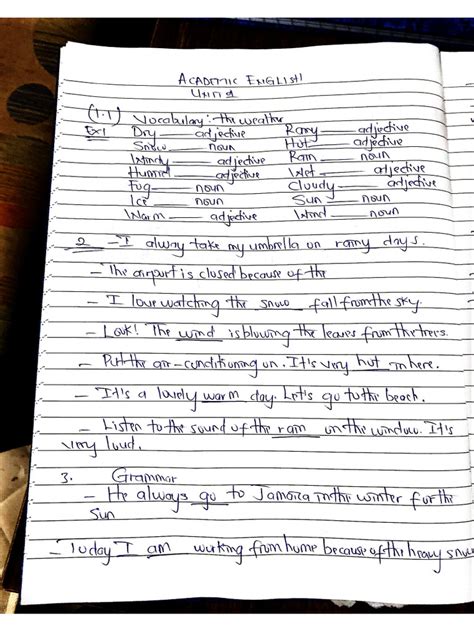 ACADEMIC ENGLISH
UNIT 1
(1.1) Vocabulary: the weather
Ex1 Dry — adjective Rany — adjective
Snow — noun Hot — adjective
Windy — adjective Rain — noun
Humid — adjective Wet — adjective
Fog — noun Cloudy — adjective
Ice — noun Sun — noun
Warm — adjective Wind — noun
2 – I alway take my umbrella on rainy days.
– The airport is closed because of the
– I love watching the snow fall from the sky.
– Look! The wind is blowing the leaves from the trees.
– Put the air-conditioning on. It's very hot in here.
– It's a lovely warm day. Let's go to the beach.
– Listen to the sound of the rain on the window. It's
very loud.
3. Grammar
– He always go to Jamaica in the winter for the
Sun
– Today I am working from home because of the heavy snow